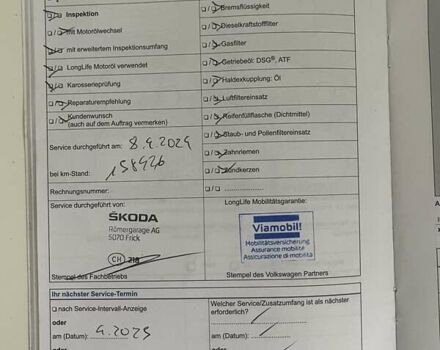 Inspektion
mit Motorölwechsel
mit erweitertem Inspektionsumfang
LongLife Motoröl verwendet
Karosserieprüfung
Reparaturempfehlung
Kundenwunsch
(auch auf dem Auftrag vermerken)
Service durchgeführt am: 8.4.2024
bei km-Stand:
Rechnungsnummer:
Bremsflüssigkeit
Dieselkraftstofffilter
Gasfilter
Getriebeöl: DSG®, ATF
Haldexkupplung: Öl
Luftfiltereinsatz
Reifenfüllflasche (Dichtmittel)
Staub- und Pollenfiltereinsatz
Zahnriemen
Zündkerzen
Service durchgeführt von:
ŠKODA
Römergarage AG
5070 Frick
CH 218
Stempel des Fachbetriebs
LongLife Mobilitätsgarantie:
Viamobil!
Mobilitätsversicherung
Assurance mobilité
Assicurazione di mobilità
Stempel des Volkswagen Partners
Ihr nächster Service-Termin
nach Service-Intervall-Anzeige
oder
am (Datum): 4.2025
oder
Welcher Service/Zusatzumfang ist als nächster
erforderlich?
am (Datum):
oder